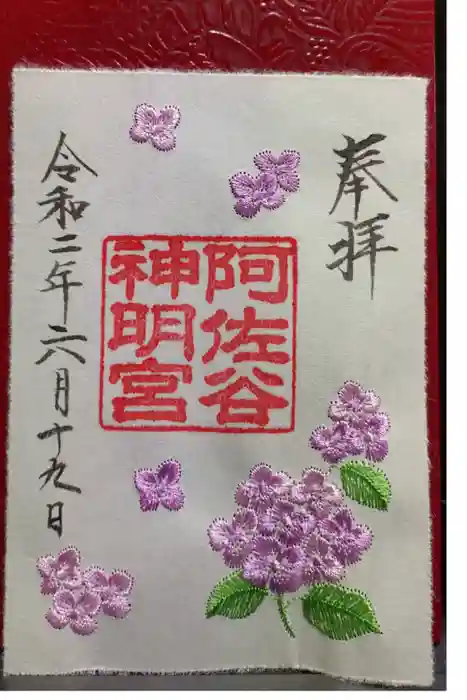 奉拝
阿佐谷
神明宮
令和二年六月十九日